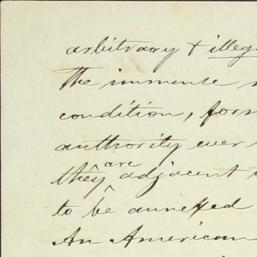 arbitrary + illeg
the immense
condition, for
authority ever
are
they adjacent
to be annexed
An American